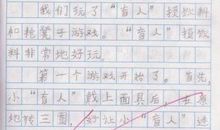 我们玩了“盲人”摸饮料
和抢凳子游戏。“盲人”摸饮
料非常地好玩。
第一个游戏开始了。首先
小“盲人”戴上面具后，在原
地转三圈，好让小“盲人”迷